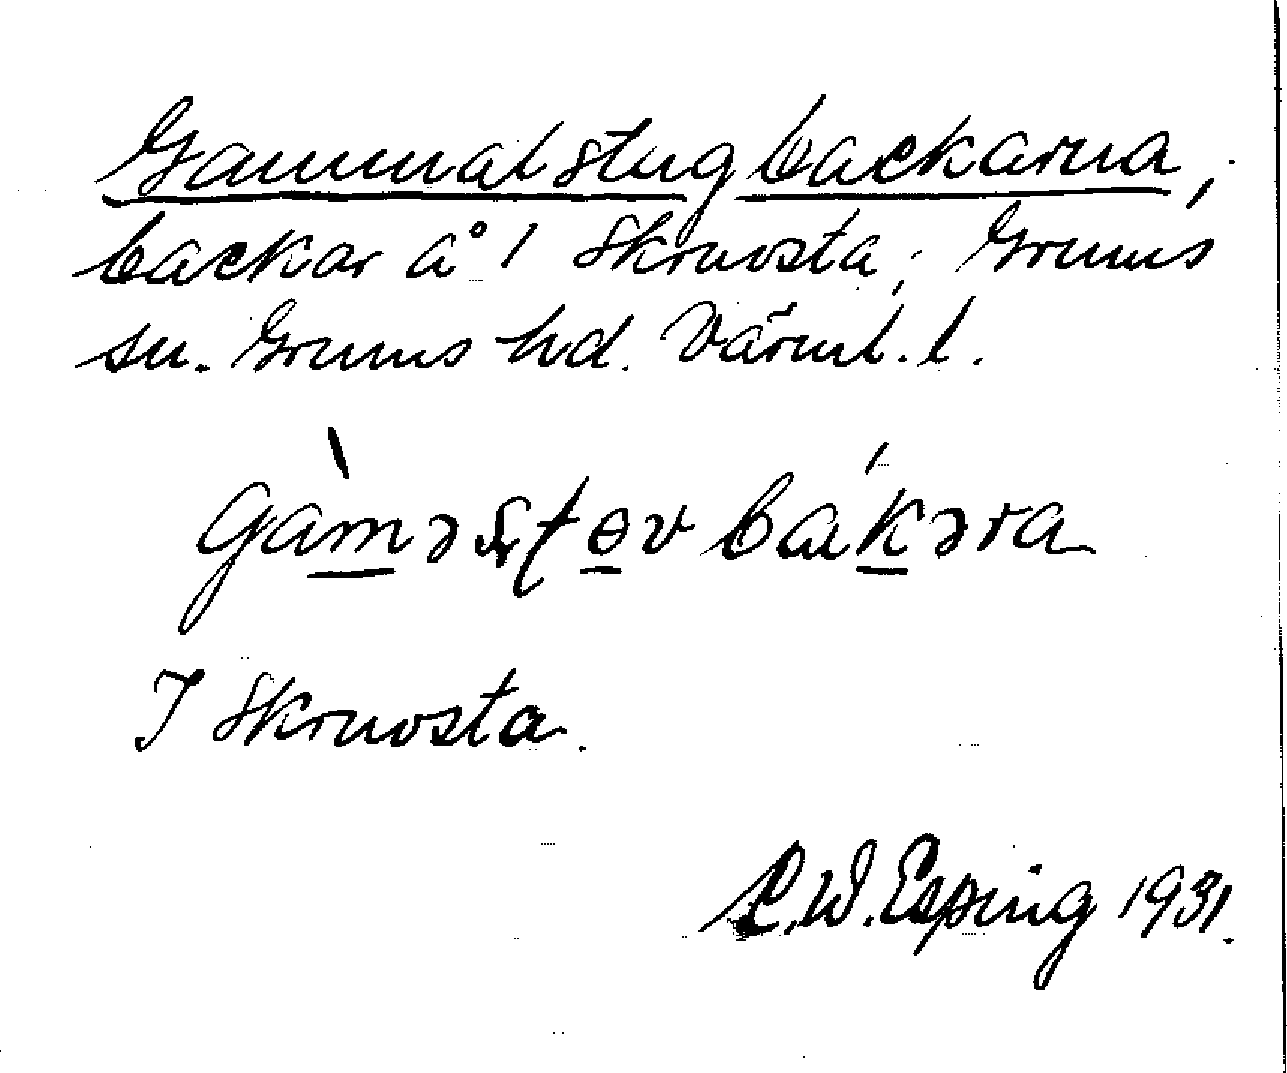 Gammalstugbackarna,
backar å 1 Skruvsta, Grums
sn. Grums hd. Värml. l.
gàməsʈɵvbákəra
I Skruvsta.
L.W. Esping 1931.